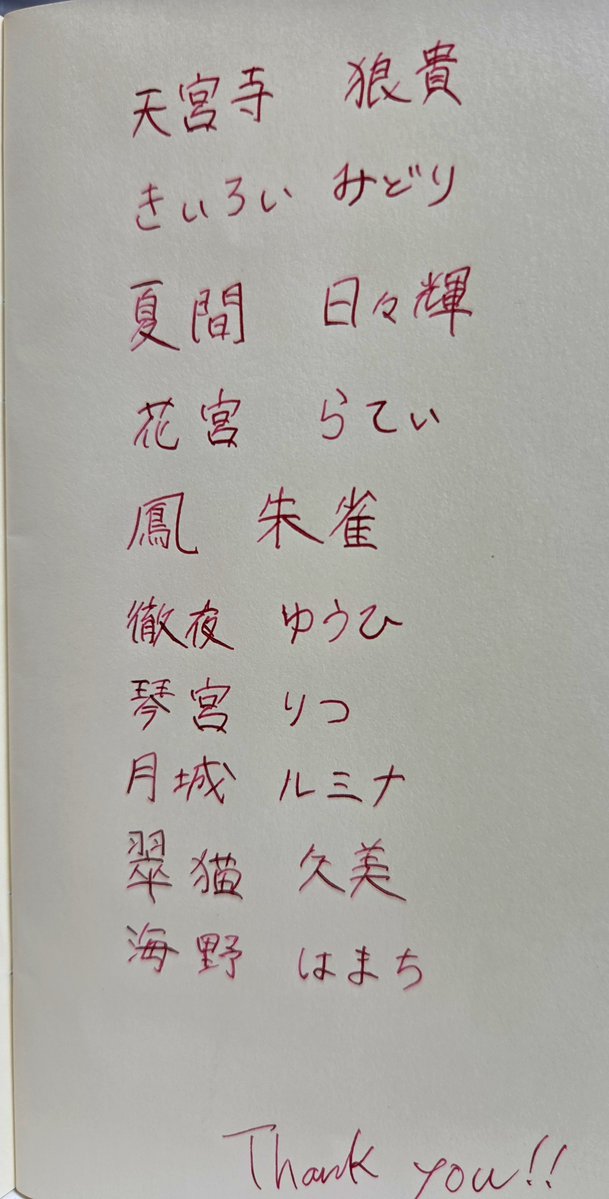 天宮寺 狼貴
きいろい みどり
夏間 日々輝
花宮 らてぃ
鳳 朱雀
徹夜 ゆうひ
琴宮 りつ
月城 ルミナ
翠猫 久美
海野 はまち
Thank you!!